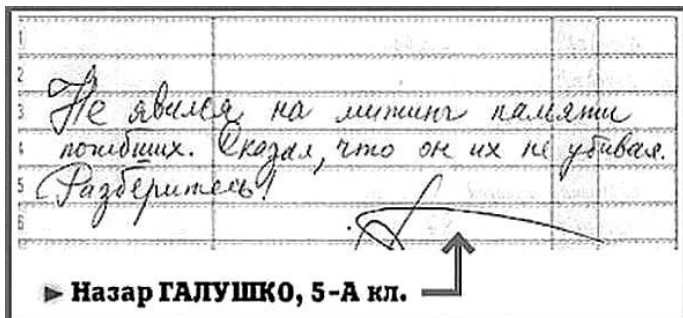 1
2
3
4
5
6
Не явился на митинг памяти
погибших. Сказал, что он их не убивал.
Разберитесь!
► Назар ГАЛУШКО, 5-А кл.